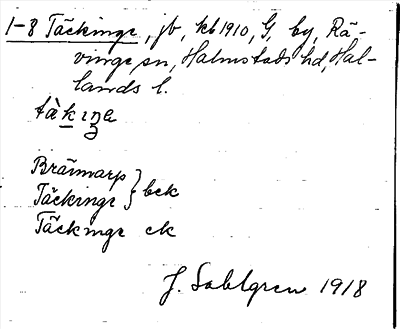 1-8 Täckinge, jb, kb 1910, G, by, Rä-
vinge sn, Halmstads hd, Hal-
lands l.
tàkiŋe
Brännarp
Täckinge } bek
Täckinge ek
J. Sahlgren 1918